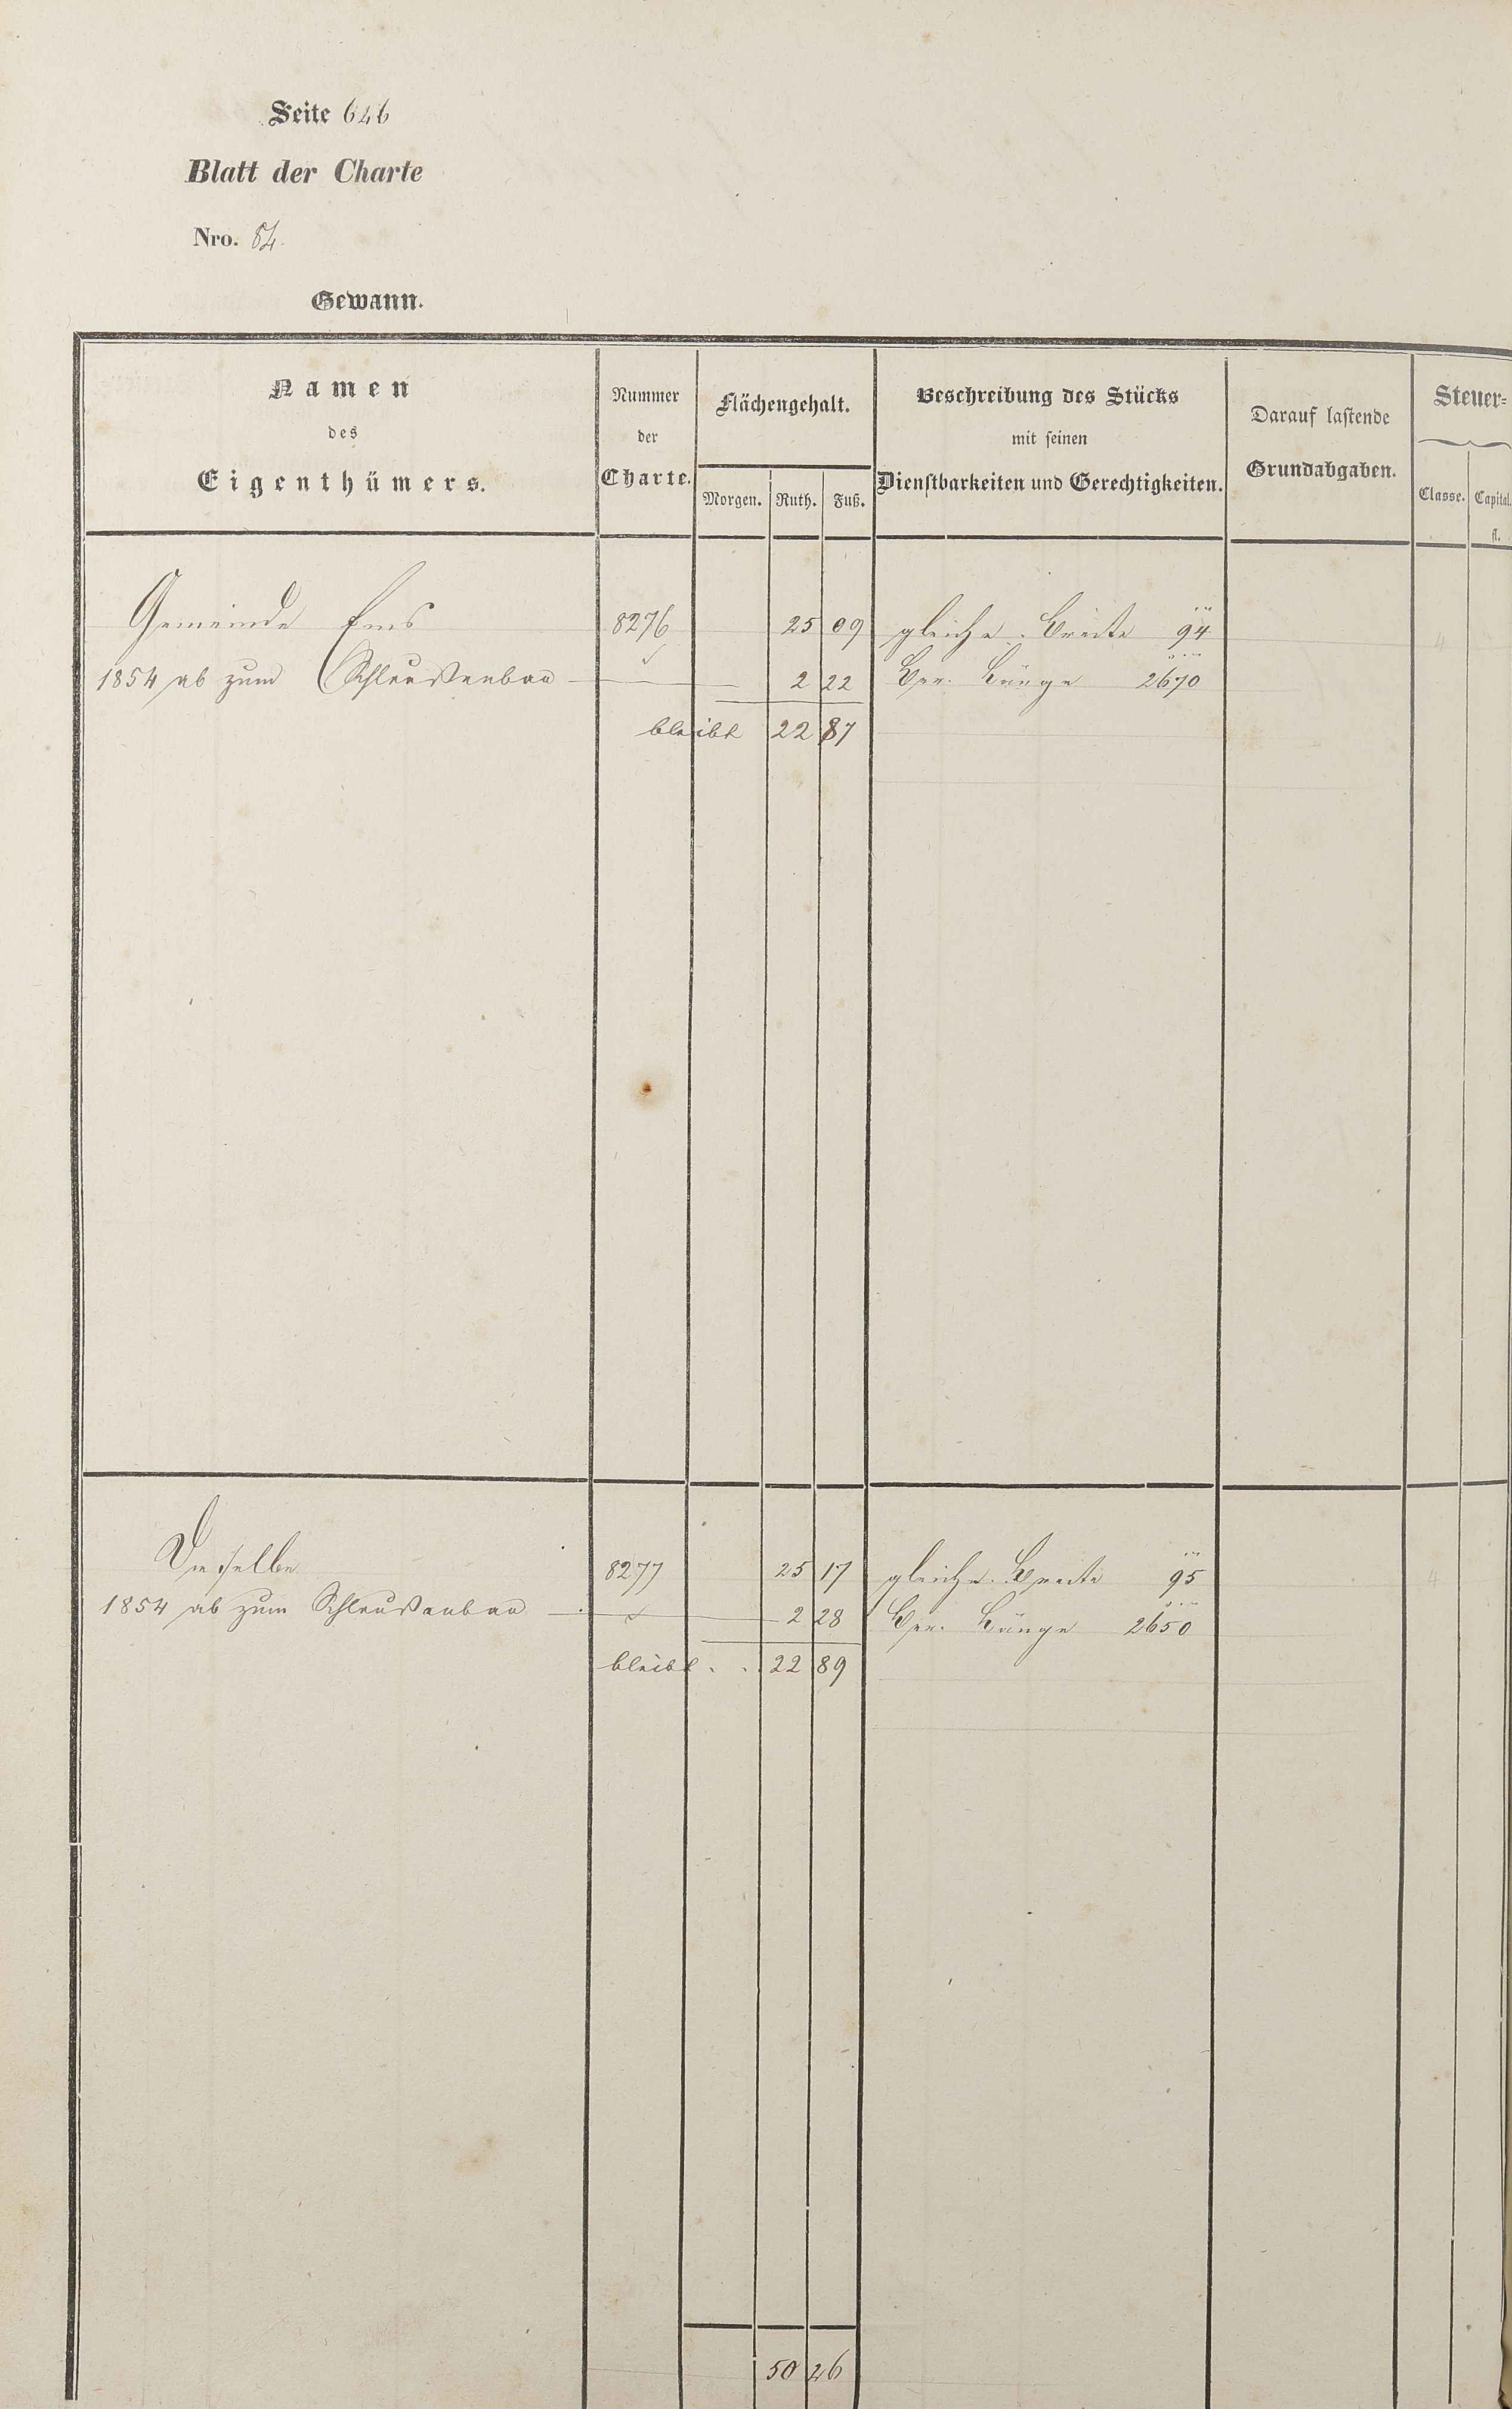 Seite 646
Blatt der Charte
Nro. 84.
Gewann.
Namen
des
Eigenthümers.
Nummer
der
Charte.
Flächengehalt.
Morgen. Ruth. Fuß.
Beschreibung des Stücks
mit seinen
Dienstbarkeiten und Gerechtigkeiten.
Darauf lastende
Grundabgaben.
Steuer=
Classe. Capital.
fl.
Gemeinde Ems 8276 25 09 gleiche Breite 94
1854 ab zum Schleußenbau 2 22 Länge 2670
bleibt 22 87
4
Dieselbe 8277 25 17 gleiche Breite 95
1854 ab zum Schleußenbau 2 28 Länge 2650
bleibt 22 89
4
50 26